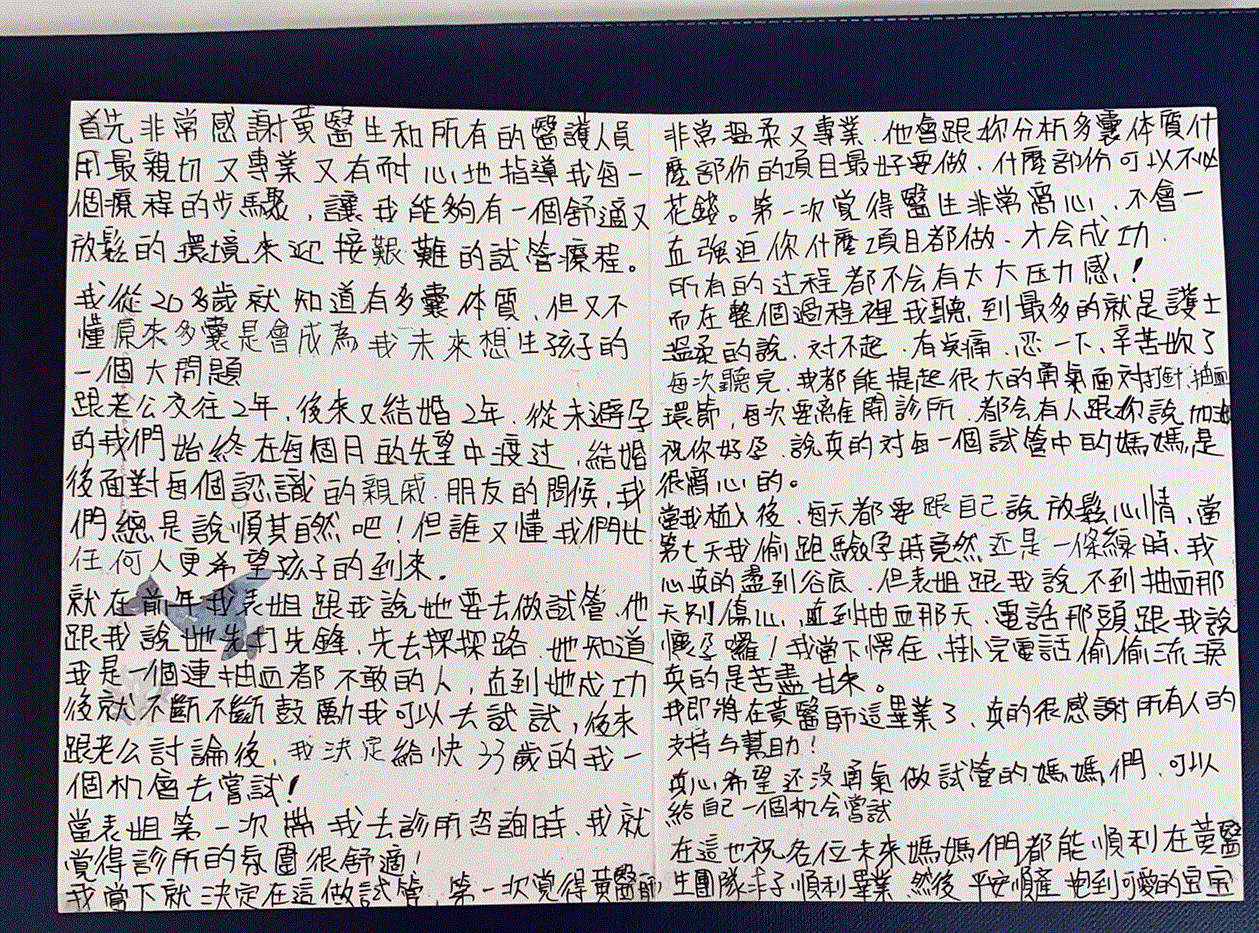 首先非常感謝黃醫生和所有的醫護人員
用最親切又專業又有耐心地指導我每一
個療程的步驟，讓我能夠有一個舒適又
放鬆的環境來迎接艱難的試管療程。
我從20多歲就知道有多囊体質，但又不
懂原來多囊是會成為我未來想生孩子的
一個大問題
跟老公交往2年，後來又結婚2年，從未避孕
的我們始終在每個月的失望中渡过，結婚
後面對每個認識的親戚．朋友的問候，我
們總是說順其自然吧！但誰又懂我們比
任何人更希望孩子的到來。
就在前年我表姐跟我說她要去做試管，他
跟我說她先打先鋒，先去探探路．她知道
我是一個連抽血都不敢的人，直到她成功
後就不斷不斷鼓勵我可以去試試，後來
跟老公討論後，我決定給快33歲的我一
個机會去嘗試！
當表姐第一次帶我去診所咨詢時、我就
覺得診所的氛圍很舒適！
我當下就決定在這做試管，第一次覺得黃醫師
非常溫柔又專業．他會跟妳分析多囊体質什
麼部份的項目最好要做、什麼部份可以不必
花錢。第一次覺得醫生非常窩心、不會一
直強迫你什麼項目都做．才会成功．
所有的过程都不会有太大压力感！
而在整個過程裡我聽到最多的就是護士
溫柔的說．对不起．有點痛．忍一下、辛苦妳了
每次聽完、我都能提起很大的勇氣面对打針、抽血
環節，每次要離開診所．都会有人跟妳說加油
祝你好孕．說真的对每一個試管中的媽媽是
很窩心的。
當我植入後．每天都要跟自己說放鬆心情，當
第七天我偷跑驗孕時竟然还是一條線時、我
心真的盪到谷底．但表姐跟我說不到抽血那
天別傷心，直到抽血那天、電話那頭跟我說
懷孕囉！我當下愣住、掛完電話偷偷流淚
真的是苦盡甘來。
我即將在黃醫師這畢業了、真的很感謝所有人的
支持与幫助！
真心希望还没勇氣做試管的媽媽們．可以
給自己一個机会嘗試
在這也祝各位未來媽媽們都能順利在黃醫
生團隊手順利畢業．然後平安順產抱到可愛的宝宝